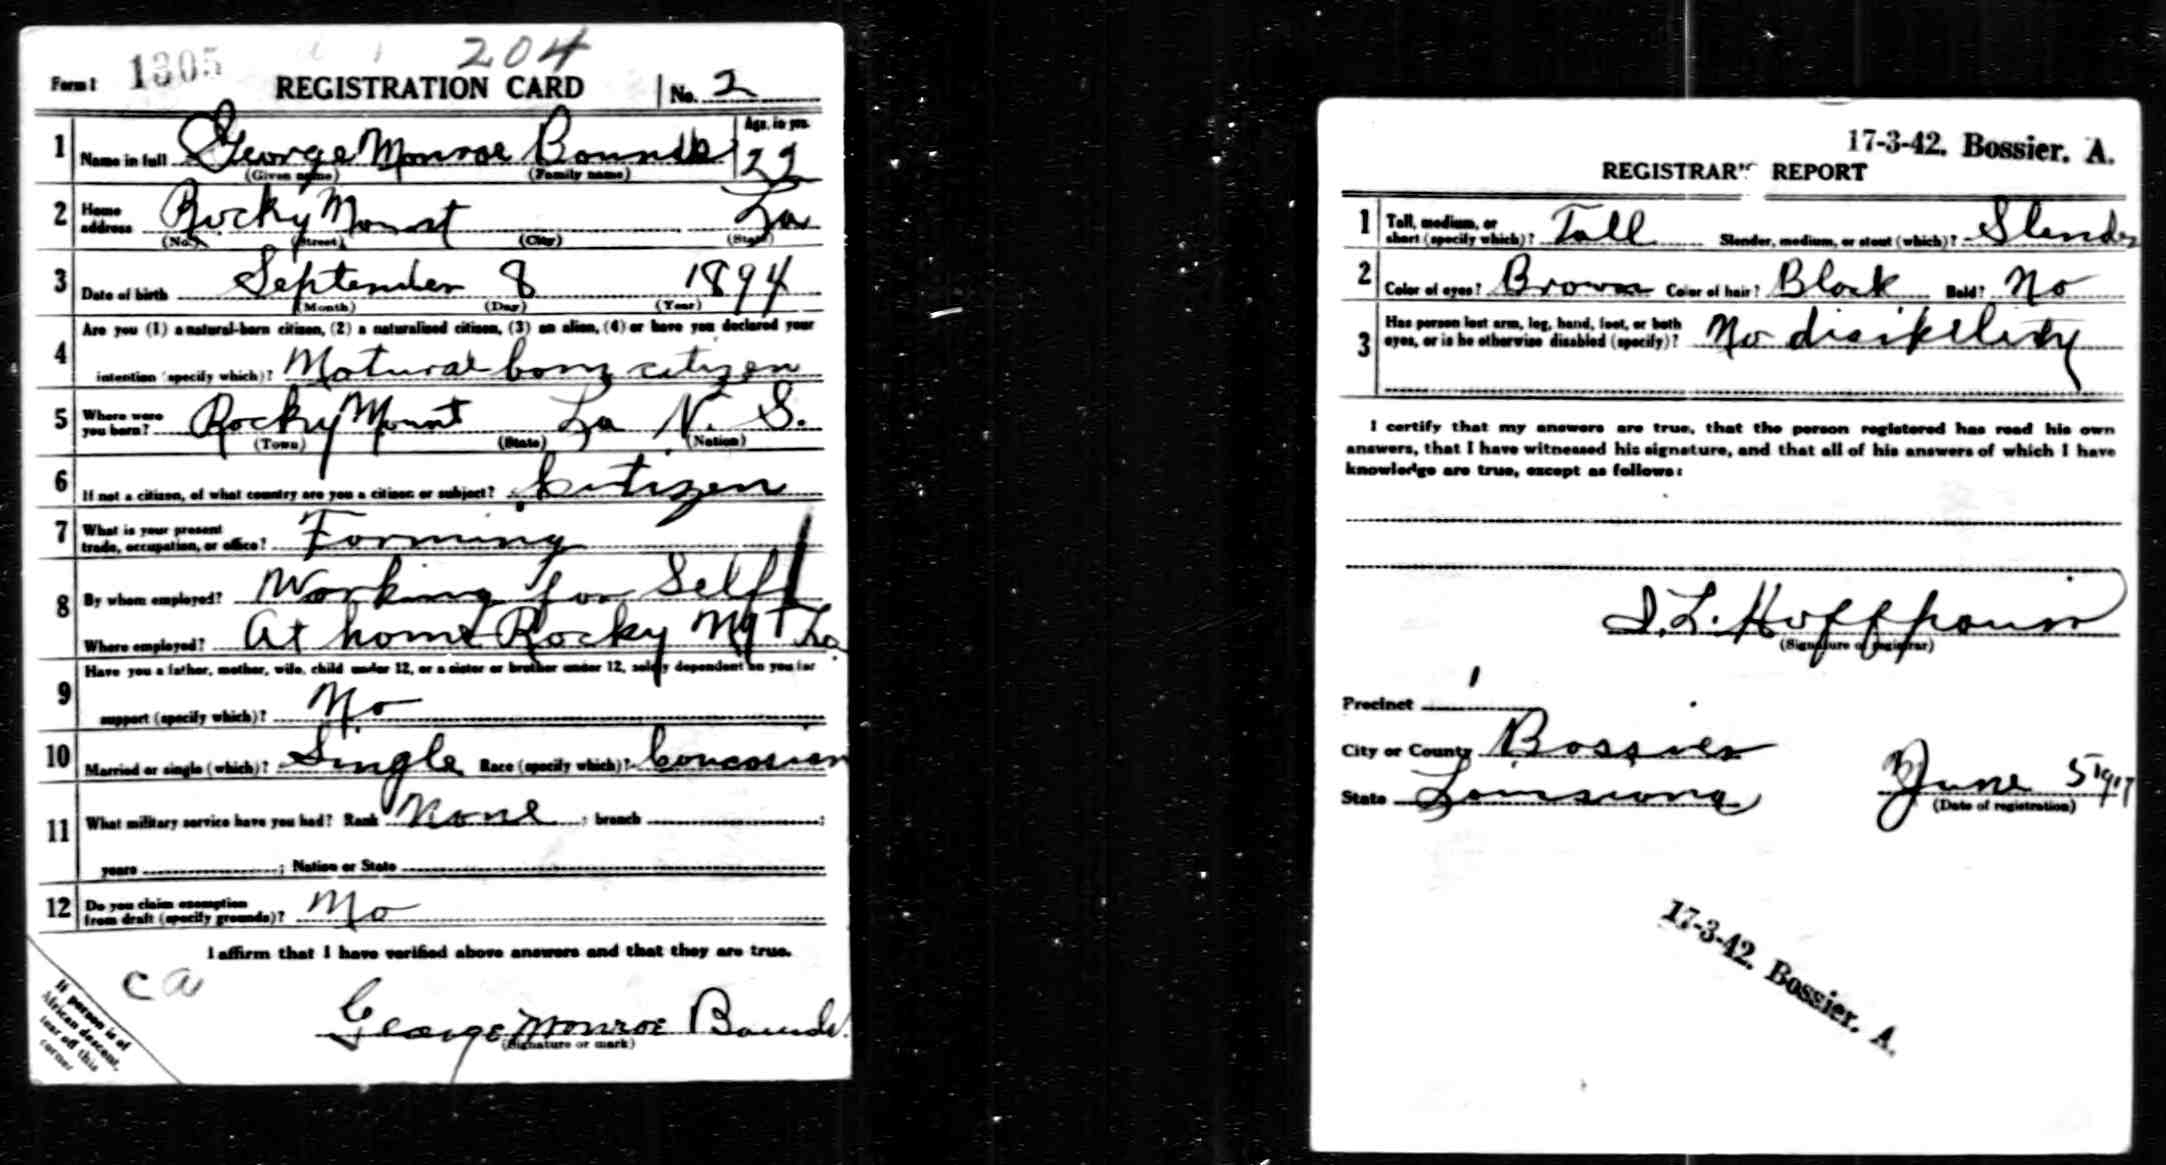 204
Form 1 1305 REGISTRATION CARD No. 2
1 Name in full George Monroe Bounds Age, in yrs. 22
(Given name) (Family name)
2 Home address Rocky Mount La
(No.) (Street) (City) (State)
3 Date of birth September 8 1894
(Month) (Day) (Year)
Are you (1) a natural-born citizen, (2) a naturalized citizen, (3) an alien, (4) or have you declared your
4 intention (specify which)? Natural born citizen
5 Where were you born? Rocky Mount La U. S.
(Town) (State) (Nation)
6 If not a citizen, of what country are you a citizen or subject? Citizen
7 What is your present trade, occupation, or office? Farming
8 By whom employed? Working for Self
Where employed? At home Rocky Mt La
Have you a father, mother, wife, child under 12, or a sister or brother under 12, solely dependent on you for
9 support (specify which)? No
10 Married or single (which)? Single Race (specify which)? Concosian
11 What military service have you had? Rank None ; branch ;
years ; Nation or State
12 Do you claim exemption from draft (specify grounds)? No
I affirm that I have verified above answers and that they are true.
ca
George Monroe Bounds
(Signature or mark)
If person is of
African descent,
tear off this
corner
17-3-42. Bossier. A.
REGISTRAR'S REPORT
1 Tall, medium, or short (specify which)? Tall Slender, medium, or stout (which)? Slender
2 Color of eyes? Brown Color of hair? Black Bald? No
3 Has person lost arm, leg, hand, foot, or both eyes, or is he otherwise disabled (specify)? No disibility
I certify that my answers are true, that the person registered has read his own
answers, that I have witnessed his signature, and that all of his answers of which I have
knowledge are true, except as follows:
I. L. Hoffpauir
(Signature of registrar)
Precinct 1
City or County Bossier
State Louisiana June 5 1917
(Date of registration)
17-3-42. Bossier. A.